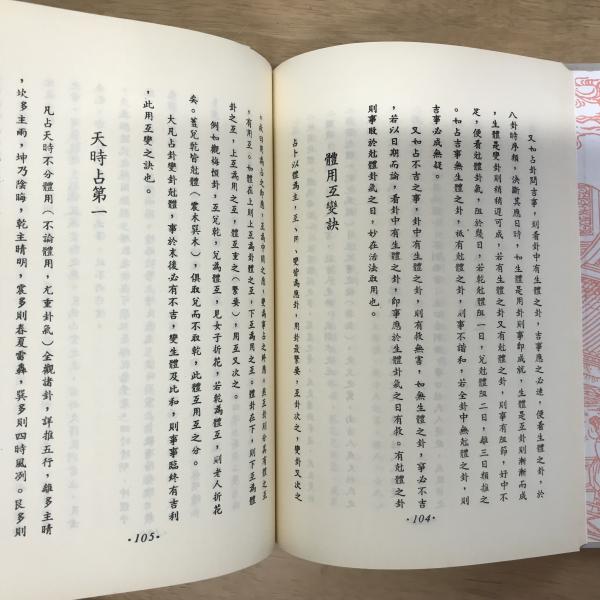 又如占卦問吉事，則看卦中有生體之卦，吉事應之必速，便看生體之卦，於
八卦時序類，決斷其應日時，如生體是用卦則事即成就，生體是互卦則漸漸而成
，生體是變卦則稍稍遲可成，若有生體之卦又有尅體之卦，則事有阻節，好中不
足，便看尅體卦氣，阻於幾日，若乾尅體阻一日，兌尅體阻二日，離三日類推之
。如占吉事無生體之卦，衹有尅體之卦，則事不諧和，若全卦中無尅體之卦，則
吉事必成無疑。
又如占不吉之事，卦中有生體之卦，則有救無害，如無生體之卦，事必不吉
，若以日期而論，看卦中有生體之卦，即事應於生體卦氣之日有救。有尅體之卦
則事敗於尅體卦氣之日，妙在活法取用也。
體用互變訣
占卜以體為主，互、用、變皆為應卦，用卦最緊要，互卦次之，變卦又次之
。故曰用為占之即應，互為中間之應，變為事占之終應。然互卦則分其有體之互
，有用互。如體在上則上互為體卦之互，下互為用之互。體卦在下，則下互為體
卦之互，上互為用之互，體互重之（緊要），用互又次之。
例如觀梅恒卦，互兌乾，兌為體互，見女子折花，若乾為體互，則老人折花
矣。蓋兌乾皆尅體（震木巽木），俱取兌而不取乾，此體互用互之分。
大凡占卦變卦尅體，事於末後必有不吉，變生體及比和，則事事臨終有吉利
，此用互變之訣也。
天時占第一
凡占天時不分體用（不論體用，尤重卦氣）全觀諸卦，詳推五行，離多主晴
，坎多主雨，坤乃陰晦，乾主晴明，震多則春夏雷轟，巽多則四時風冽。艮多則
·104·
·105·